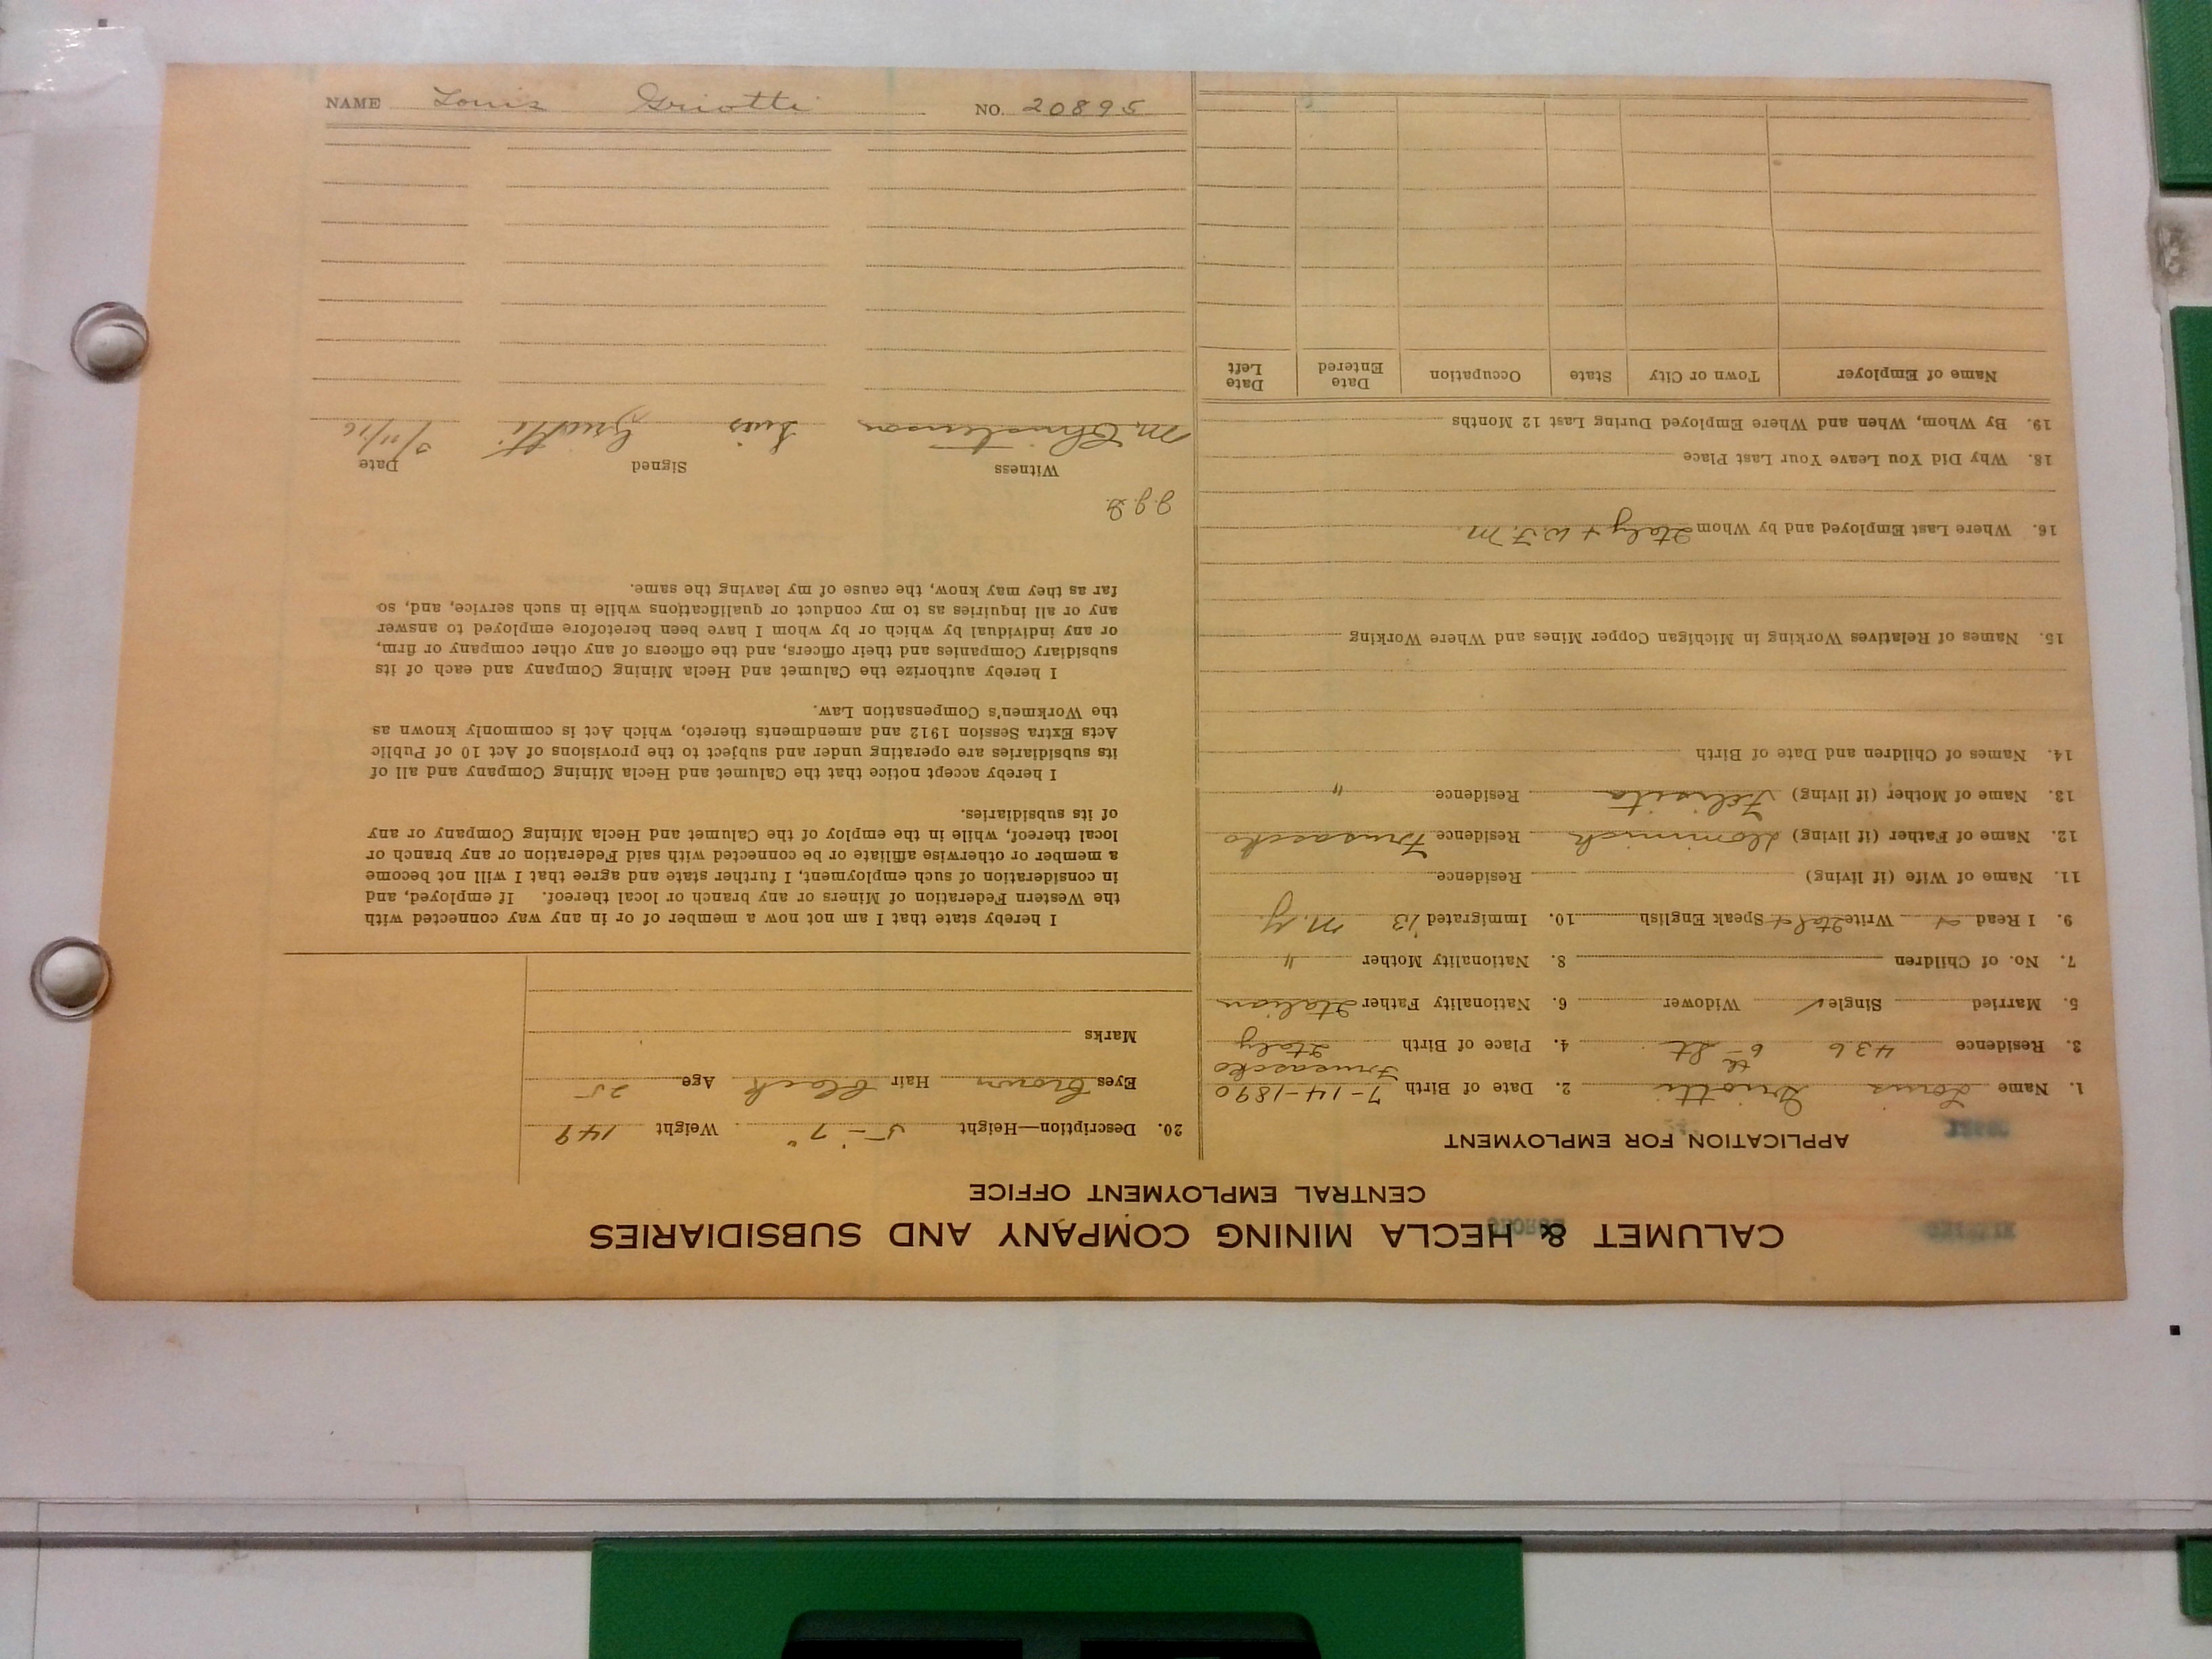 NAME Louis Griotti NO. 20895
CALUMET & HECLA MINING COMPANY AND SUBSIDIARIES
CENTRAL EMPLOYMENT OFFICE
APPLICATION FOR EMPLOYMENT
1. Name Louis Griotti 2. Date of Birth 7-14-1890
3. Residence 436 6th St 4. Place of Birth Italy
5. Married Single ✓ Widower 6. Nationality Father Italian
7. No. of Children 8. Nationality Mother "
9. I Read + Write Ital + Speak English 10. Immigrated '13 N.Y.
11. Name of Wife (if living) Residence
12. Name of Father (if living) Dominick Residence
13. Name of Mother (if living) Residence "
14. Names of Children and Date of Birth
15. Names of Relatives Working in Michigan Copper Mines and Where Working
16. Where Last Employed and by Whom Italy + W.F.M
18. Why Did You Leave Your Last Place
19. By Whom, When and Where Employed During Last 12 Months
Name of Employer Town or City State Occupation Date Entered Date Left
20. Description—Height 5-7" Weight 149
Eyes Brown Hair Black Age 25
Marks
I hereby state that I am not now a member of or in any way connected with
the Western Federation of Miners or any branch or local thereof. If employed, and
in consideration of such employment, I further state and agree that I will not become
a member or otherwise affiliate or be connected with said Federation or any branch or
local thereof, while in the employ of the Calumet and Hecla Mining Company or any
of its subsidiaries.
I hereby accept notice that the Calumet and Hecla Mining Company and all of
its subsidiaries are operating under and subject to the provisions of Act 10 of Public
Acts Extra Session 1912 and amendments thereto, which Act is commonly known as
the Workmen's Compensation Law.
I hereby authorize the Calumet and Hecla Mining Company and each of its
subsidiary Companies and their officers, and the officers of any other company or firm,
or any individual by which or by whom I have been heretofore employed to answer
any or all inquiries as to my conduct or qualifications while in such service, and, so
far as they may know, the cause of my leaving the same.
Witness Signed Date
M. Christenson Luis Griotti